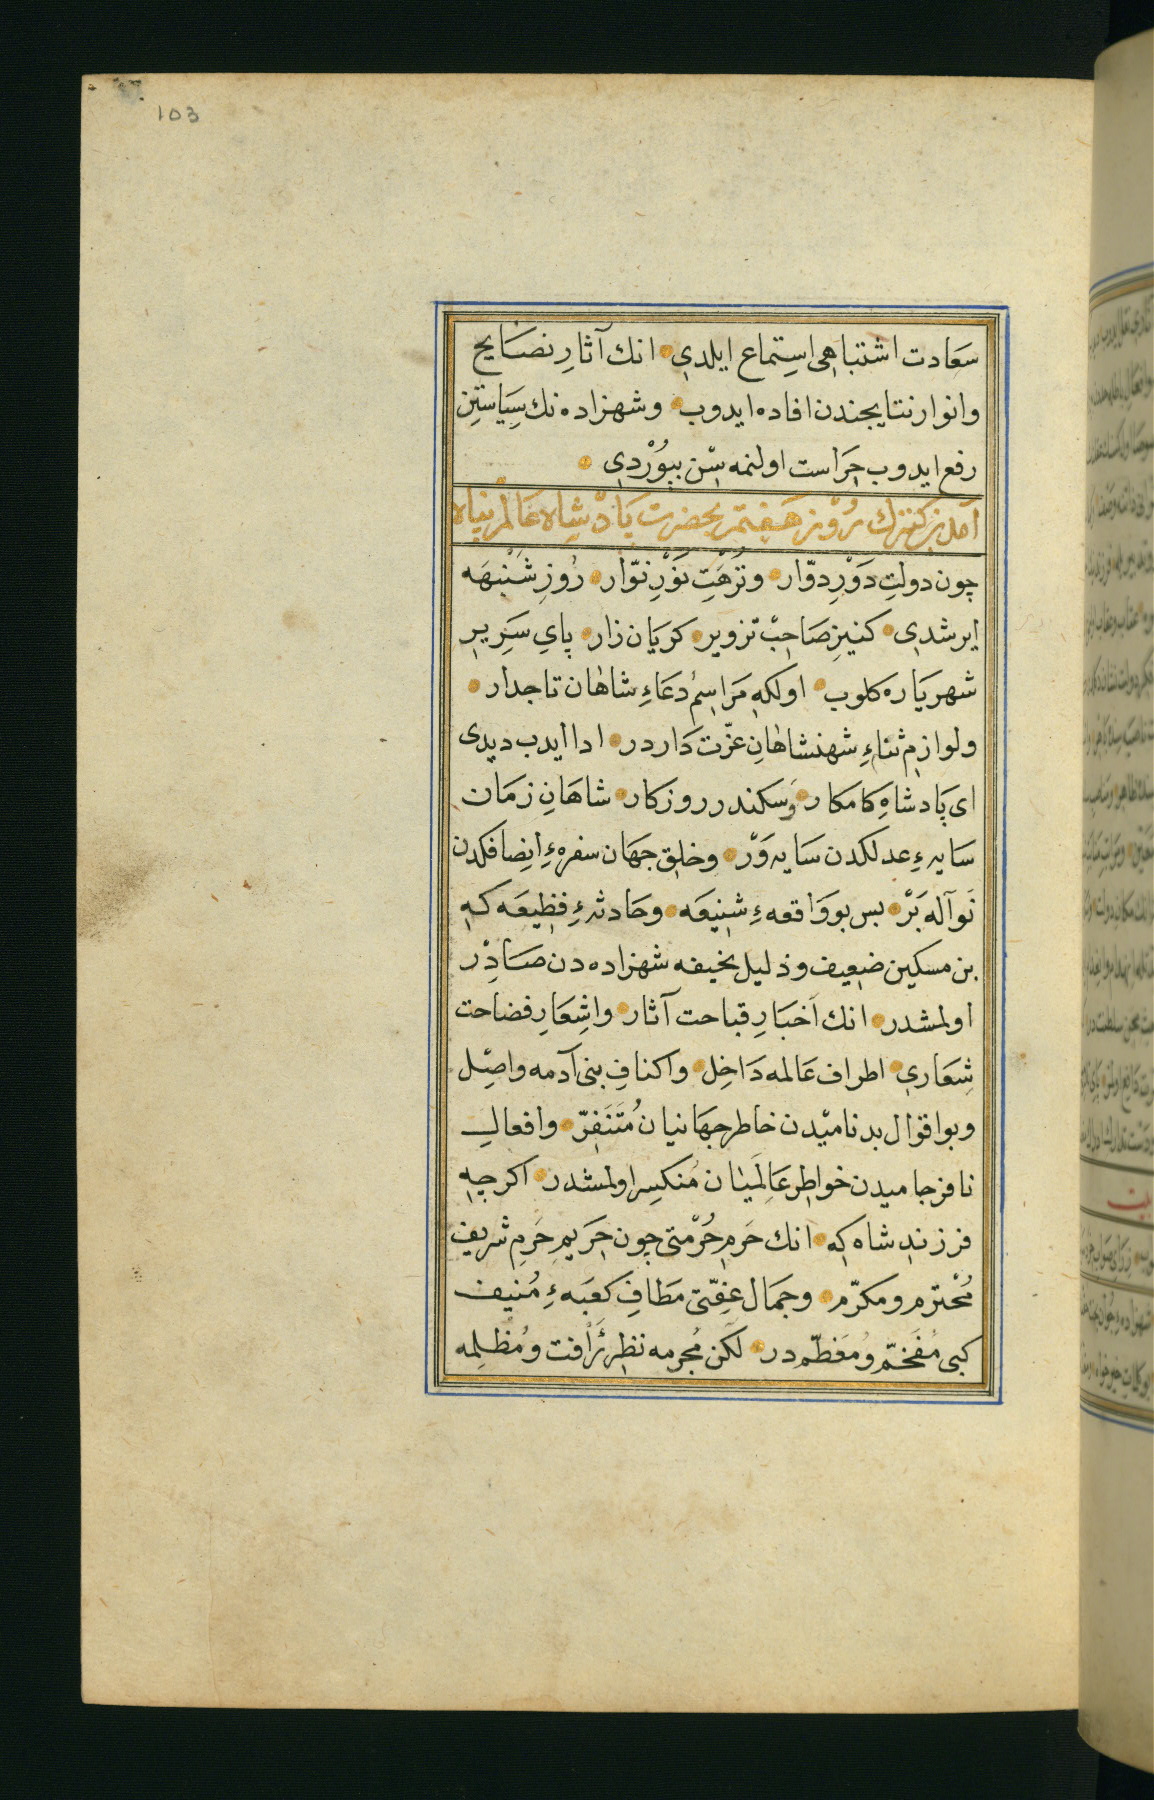 103
سَعَادت اشتباهی اسِتماع ایلدیِ ۰ انك آثارِ نصَایح
وانوار نتایجندن افاده ایدوب ۰ وشهزاده نك سِیَاستِن
رفع ایدوب حِرَاست اولنمه سْن بیوُرْدیِ ۰
آمدن کنیزك رُوْز هَفتم بحضرت پَادْشِاه عَالَم پناه
چون دولتِ دَوْرِ دوّار ۰ ونُزهَتِ نَوْرِ نوّار ۰ رُوزِ شَنْبهَه
ایرشدیِ ۰ کنیزِ صَاحِبْ تزویر ۰ کریَان زار ۰ پایِ سَرِیرِ
شهریَاره کلوب ۰ اولکهِ مَراسِمُ دعَاءِ شاهان تاجدار ۰
ولوازمِ ثناءِ شهنشاهانِ عزّت دَاردر ۰ ادا ایدب دیدی
ای پَادشاهِ کامکار ۰ وَسکندر روزکار ۰ شاهَانِ زمَان
سَایهءِ عدلکدن سَایه وَرْ ۰ وخلِق جهَان سفرهءِ اِنِصافکدن
نَوآله بَرْ ۰ بس بو وَاقعهءِ شنِیعَه ۰ وحَادثهءِ فظِیعَه کهِ
بن مسکین ضعِیف وذلیل نحیفه شهزاده دن صَادِرْ
اولمشدر ۰ انك اَخبَارِ قباحت آثار ۰ واشِعَارِ فضاحت
شِعَاریِ ۰ اطراف عَالمه دَاخِل ۰ واکنافِ بنی آدمه واصِل
وبو اقوال بدنامیْدن خاطر جهَانیان مُتَنَفِّر ۰ وافعالِ
نافرجامیدن خواطِر عَالَمیَان مُنکسِر اولمشدر ۰ اکرچهِ
فرزندِ شاه کهِ ۰ انك حَرم حُرْمتی چون حَرِیمِ حَرمِ شریف
مُحْترم ومکرّم ۰ وجمَال عفِتّی مَطَافِ کعبَهءِ مُنیف
کبی مُفَخّم ومُعَظّم در ۰ لکن مُجرمه نظرِ رَأفت ومُظلِمه